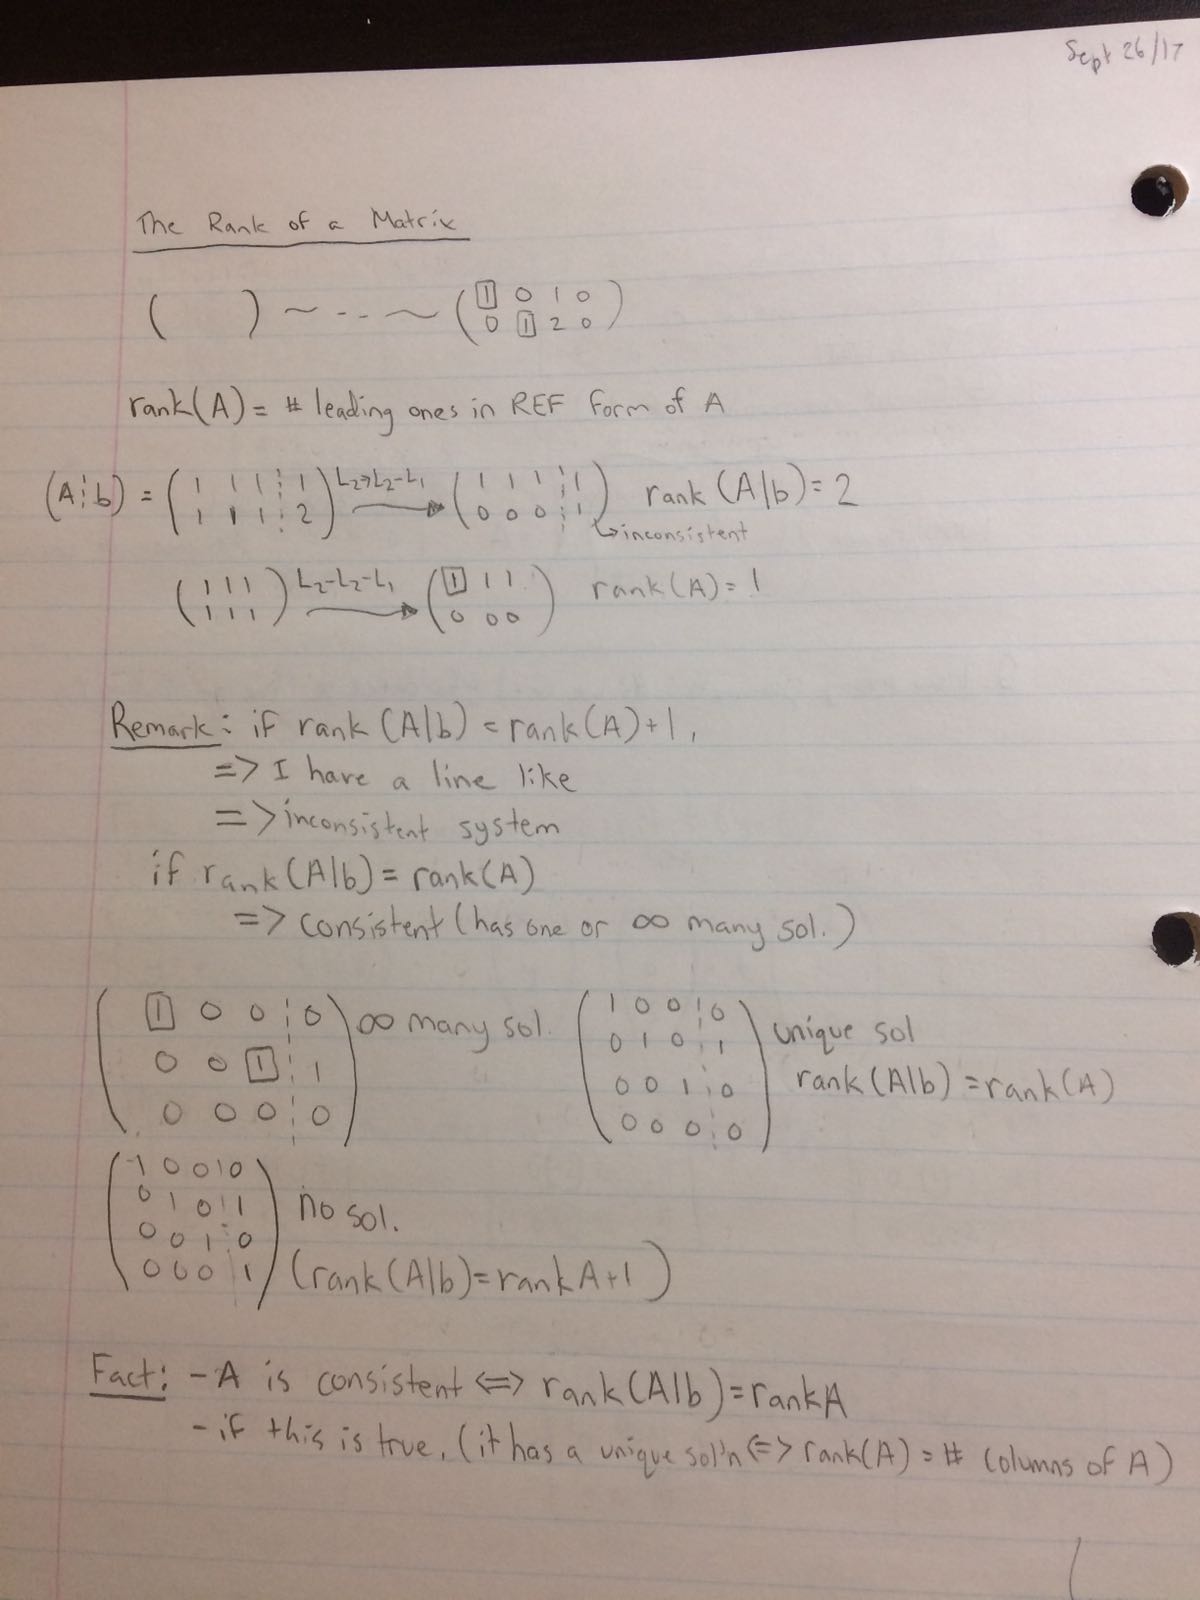 Sept 26/17
The Rank of a Matrix
(      ) ~ - - - ~ ( 1 0 1 0
0 1 2 0 )
rank(A) = # leading ones in REF form of A
(A¦b) = ( 1 1 1 ¦ 1
1 1 1 ¦ 2 ) L₂→L₂-L₁ ( 1 1 1 ¦ 1
0 0 0 ¦ 1 ) rank (A|b) = 2
↳inconsistent
( 1 1 1
1 1 1 ) L₂-L₂-L₁ ( 1 1 1
0 0 0 ) rank(A) = 1
Remark: if rank (A|b) = rank(A)+1,
=> I have a line like
=> inconsistent system
if rank(A|b) = rank(A)
=> consistent (has one or ∞ many sol.)
( 1 0 0 ¦ 0
0 0 1 ¦ 1
0 0 0 ¦ 0 ) ∞ many sol.
( 1 0 0 ¦ 0
0 1 0 ¦ 1
0 0 1 ¦ 0
0 0 0 ¦ 0 ) unique sol
rank(A|b) = rank(A)
( 1 0 0 ¦ 0
0 1 0 ¦ 1
0 0 1 ¦ 0
0 0 0 ¦ 1 ) no sol.
(rank(A|b) = rank A+1)
Fact: - A is consistent <=> rank(A|b) = rank A
- if this is true, (it has a unique sol'n <=> rank(A) = # columns of A)